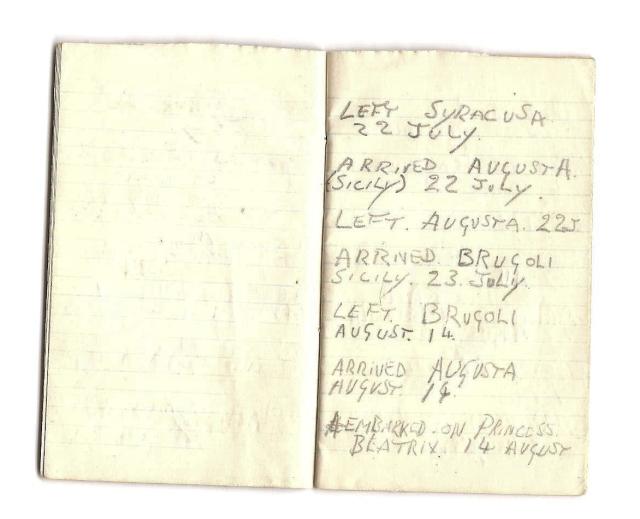 LEFT SYRACUSA
22 JULY.
ARRIVED AUGUSTA.
(SICILY) 22 JULY.
LEFT. AUGUSTA. 22J
ARRIVED. BRUGOLI
SICILY. 23. JULY.
LEFT. BRUGOLI
AUGUST. 14.
ARRIVED AUGUSTA
AUGUST. 14.
EMBARKED. ON PRINCESS.
BEATRIX. 14 AUGUST